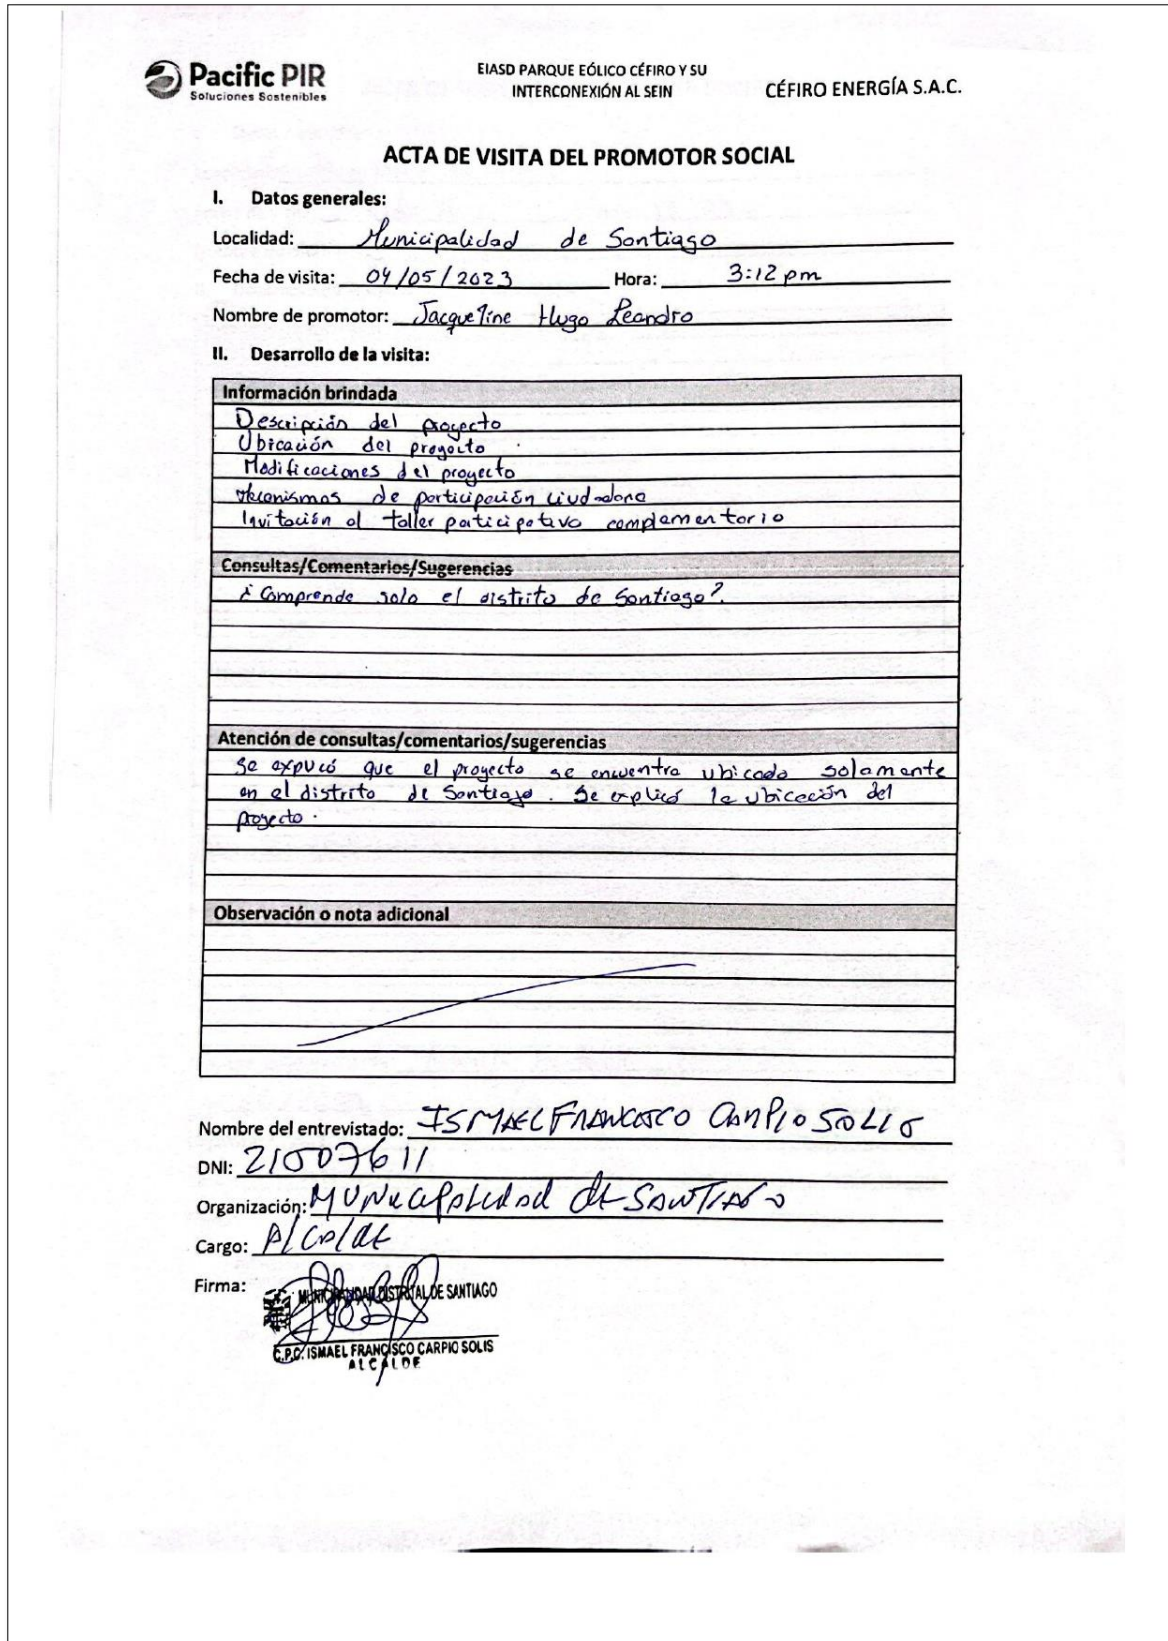 Pacific PIR
Soluciones Sostenibles
EIASD PARQUE EÓLICO CÉFIRO Y SU
INTERCONEXIÓN AL SEIN
CÉFIRO ENERGÍA S.A.C.
ACTA DE VISITA DEL PROMOTOR SOCIAL
I. Datos generales:
Localidad: Municipalidad de Santiago
Fecha de visita: 04/05/2023 Hora: 3:12 pm
Nombre de promotor: Jacqueline Hugo Leandro
II. Desarrollo de la visita:
Información brindada
Descripción del proyecto
Ubicación del proyecto
Modificaciones del proyecto
Mecanismos de participación ciudadana
Invitación al taller participativo complementario
Consultas/Comentarios/Sugerencias
¿Comprende solo el distrito de Santiago?.
Atención de consultas/comentarios/sugerencias
Se explicó que el proyecto se encuentra ubicado solamente
en el distrito de Santiago. Se explicó la ubicación del
proyecto.
Observación o nota adicional
Nombre del entrevistado: ISMAEL FRANCISCO CARPIO SOLIS
DNI: 21507611
Organización: MUNICIPALIDAD DE SANTIAGO
Cargo: Alcalde
Firma:
MUNICIPALIDAD DISTRITAL DE SANTIAGO
C.P.C. ISMAEL FRANCISCO CARPIO SOLIS
ALCALDE